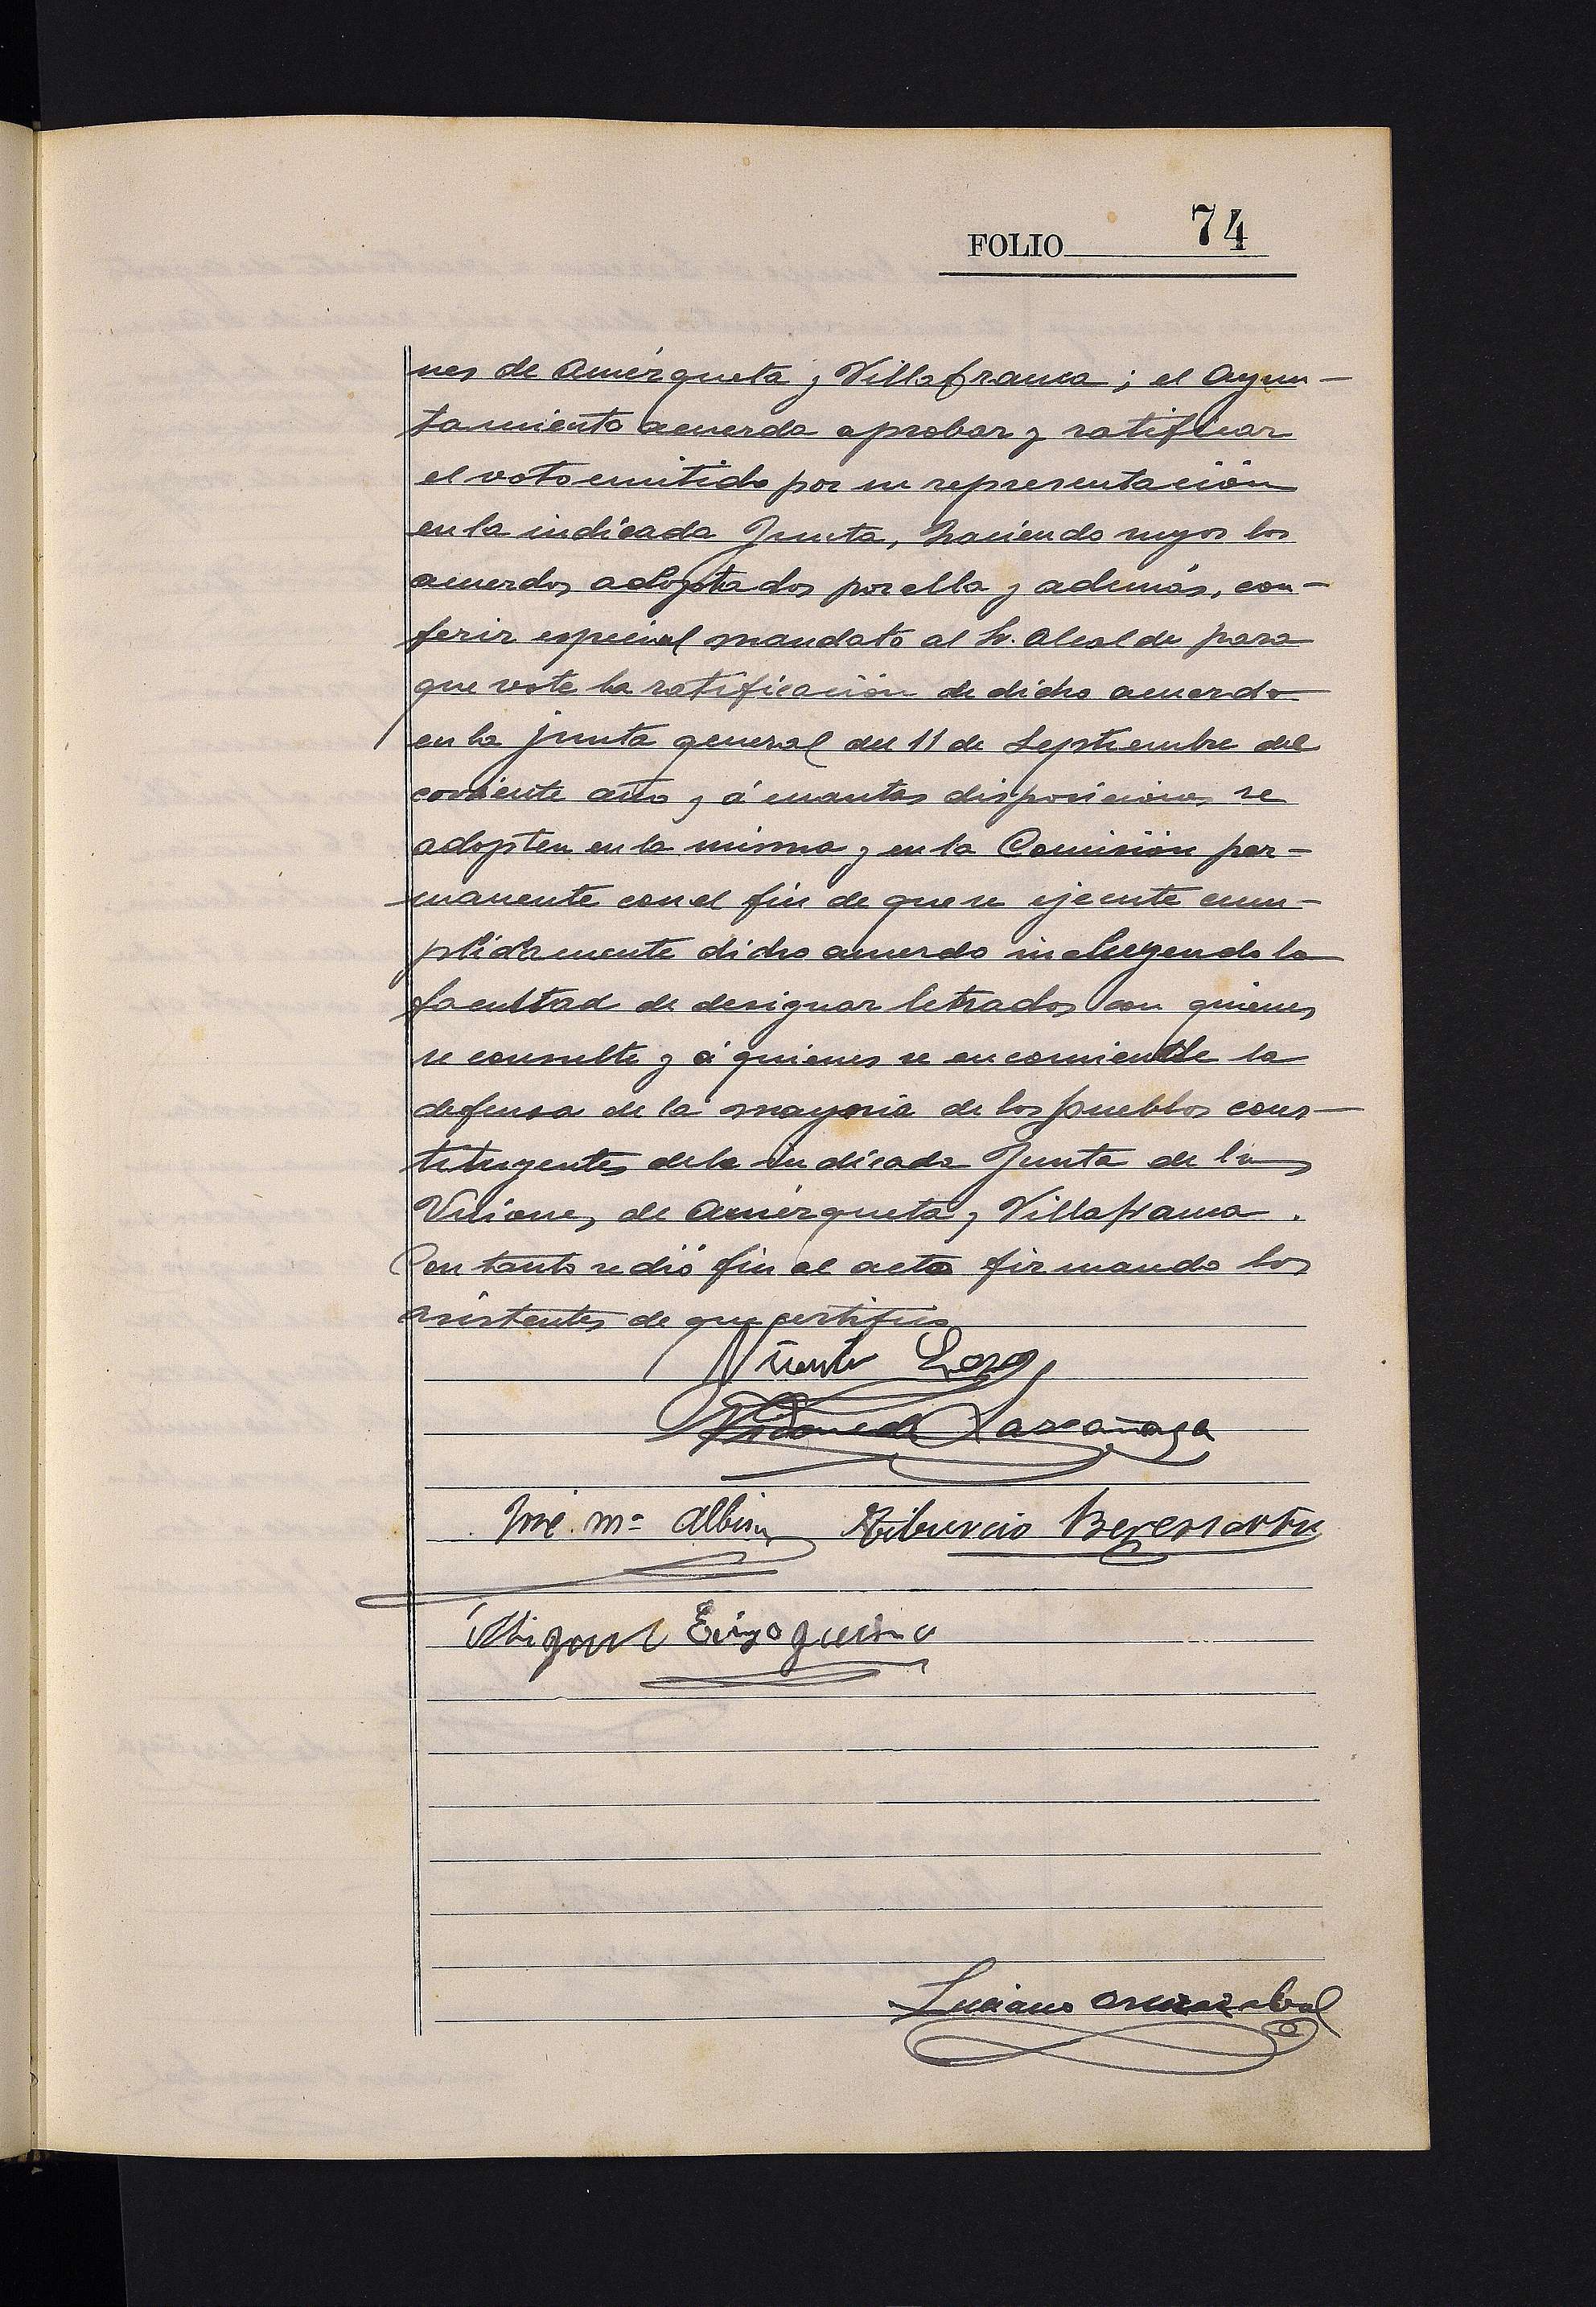 FOLIO 74
nes de Amézqueta y Villafranca; el Ayun-
tamiento acuerda aprobar y ratificar
el voto emitido por su representación
en la indicada Junta, haciendo suyos los
acuerdos adoptados por ella y además, con-
ferir especial mandato al Sr. Alcalde para
que vote la ratificación de dicho acuerdo
en la junta general del 11 de Septiembre del
corriente año y á cuantas disposiciones se
adopten en la misma y en la Comisión per-
manente con el fin de que se ejecute cum-
plidamente dicho acuerdo incluyendo la
facultad de designar letrados con quienes
se consulte y á quienes se encomiende la
defensa de la mayoria de los pueblos cons-
tituyentes de la indicada Junta de las
Uniones de Amézqueta y Villafranca.
Con tanto se dió fin al acto firmando los
asistentes de que certifico
Vicente
Lascañaga
José Mª Albisu Tiburcio
Miguel
Luciano